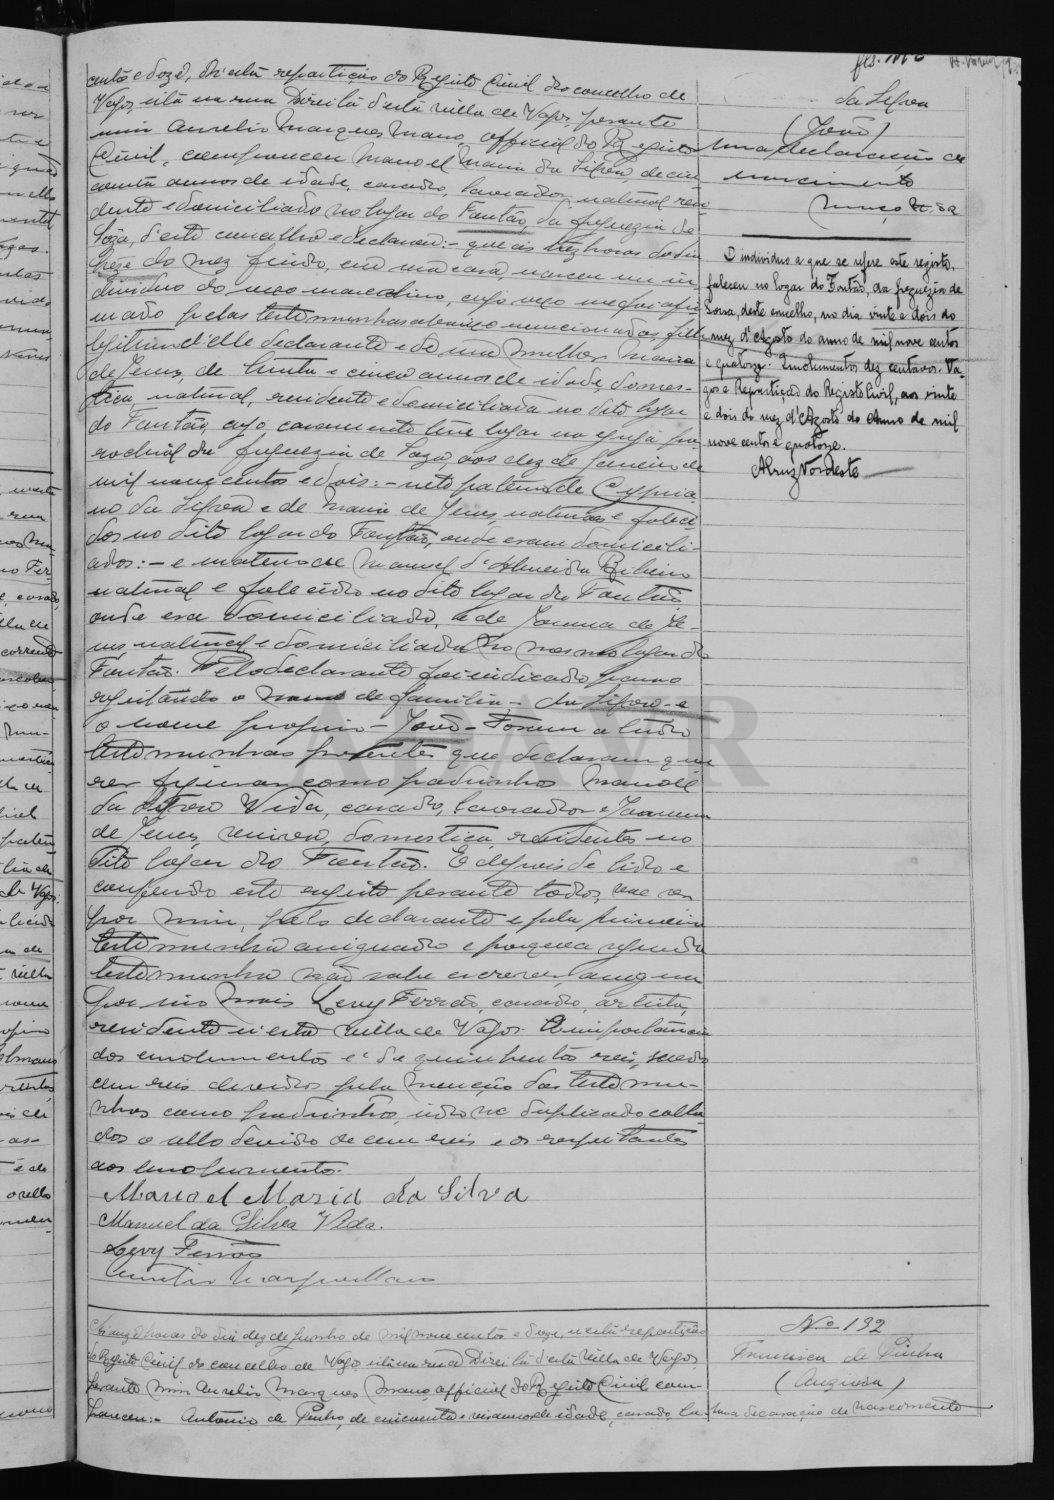 cento e doze, n'esta repartição do Registo Civil do concelho de
Vagos, sita na rua Direita d'esta villa de Vagos, perante
mim Aurelio Marques Mano, official do Registo
Civil, compareceu Manoel Maria da Silva, de cin
coenta annos de idade, casado, lavrador, natural, resi
dente e domiciliado no logar do Fontão, da freguezia de
Soza, d'este concelho e declarou:- que ás trez horas do dia
treze do mez findo, em sua casa nasceu um in
dividuo do sexo masculino, cujo sexo me foi afir
mado pelas testemunhas abaixo mencionadas, filho
legitimo d'elle declarante e de sua mulher Maria
de Jesus, de trinta e cinco annos de idade, domes-
tica, natural, residente e domiciliada no dito logar
do Fontão, cujo casamento teve logar na egreja pa
rochial da freguezia de Soza, aos dez de Janeiro de
mil novecentos e dois:- neto paterno de Cypria
no da Silva e de Maria de Jesus, naturaes e faleci
dos no dito logar do Fontão, onde eram domicili-
ados:- e materno de Manuel d'Almeida Ribeiro
natural e falecido no dito logar do Fontão
onde era domiciliado, e de Joanna de Je-
sus, natural e domiciliada no mesmo logar do
Fontão. Pelo declarante foi indicado para o
registando o nome de familia - da Silva - e
o nome proprio - João - Foram a tudo
testemunhas presentes que declaram que
rer figurar como padrinhos Manoel
da Silva Vida, casado, lavrador e Joanna
de Jesus, domestica, residentes no
dito logar do Fontão. E depois de lido e
conferido este registo perante todos, vae ser
por mim, pelo declarante e pela primeira
testemunha assignado e porque a segunda
testemunha não sabe escrever, assigna
por ella mais Levy Ferrão, casado, artista,
residente n'esta villa de Vagos. A importancia
dos emolumentos é de quinhentos reis, sendo
cem reis devidos pela menção das testemu-
nhas como padrinhos, indo no duplicado colla
dos o sello devido de cem reis e os respeitantes
aos emolumentos.
Manoel Maria da Silva
Manuel da Silva Vida.
Levy Ferrão
Aurelio Marques Mano
Ás horas do dia dez de Junho de mil nove centos e doze, n'esta repartição
do Registo Civil do concelho de Vagos, sita na rua Direita d'esta Villa de Vagos,
perante mim Aurelio Marques Mano, official do Registo Civil, com-
pareceu:- Antonio de Pinho, de cincoenta e seis annos de idade, casado, la-
da Silva
(João)
Uma declaração de
nascimento
O individuo a que se refere este registo,
faleceu no logar do Fontão, da freguezia de
Sosa, deste concelho, no dia vinte e dois do
mez d'Agosto do anno de mil nove centos
e quatorze. Emolumentos dez centavos. Va-
gos e Repartição do Registo Civil, aos vinte
e dois do mez d'Agosto do anno de mil
nove centos e quatorze.
ADAVR
No 192
Francisca de Pinho
Uma declaração de nascimento